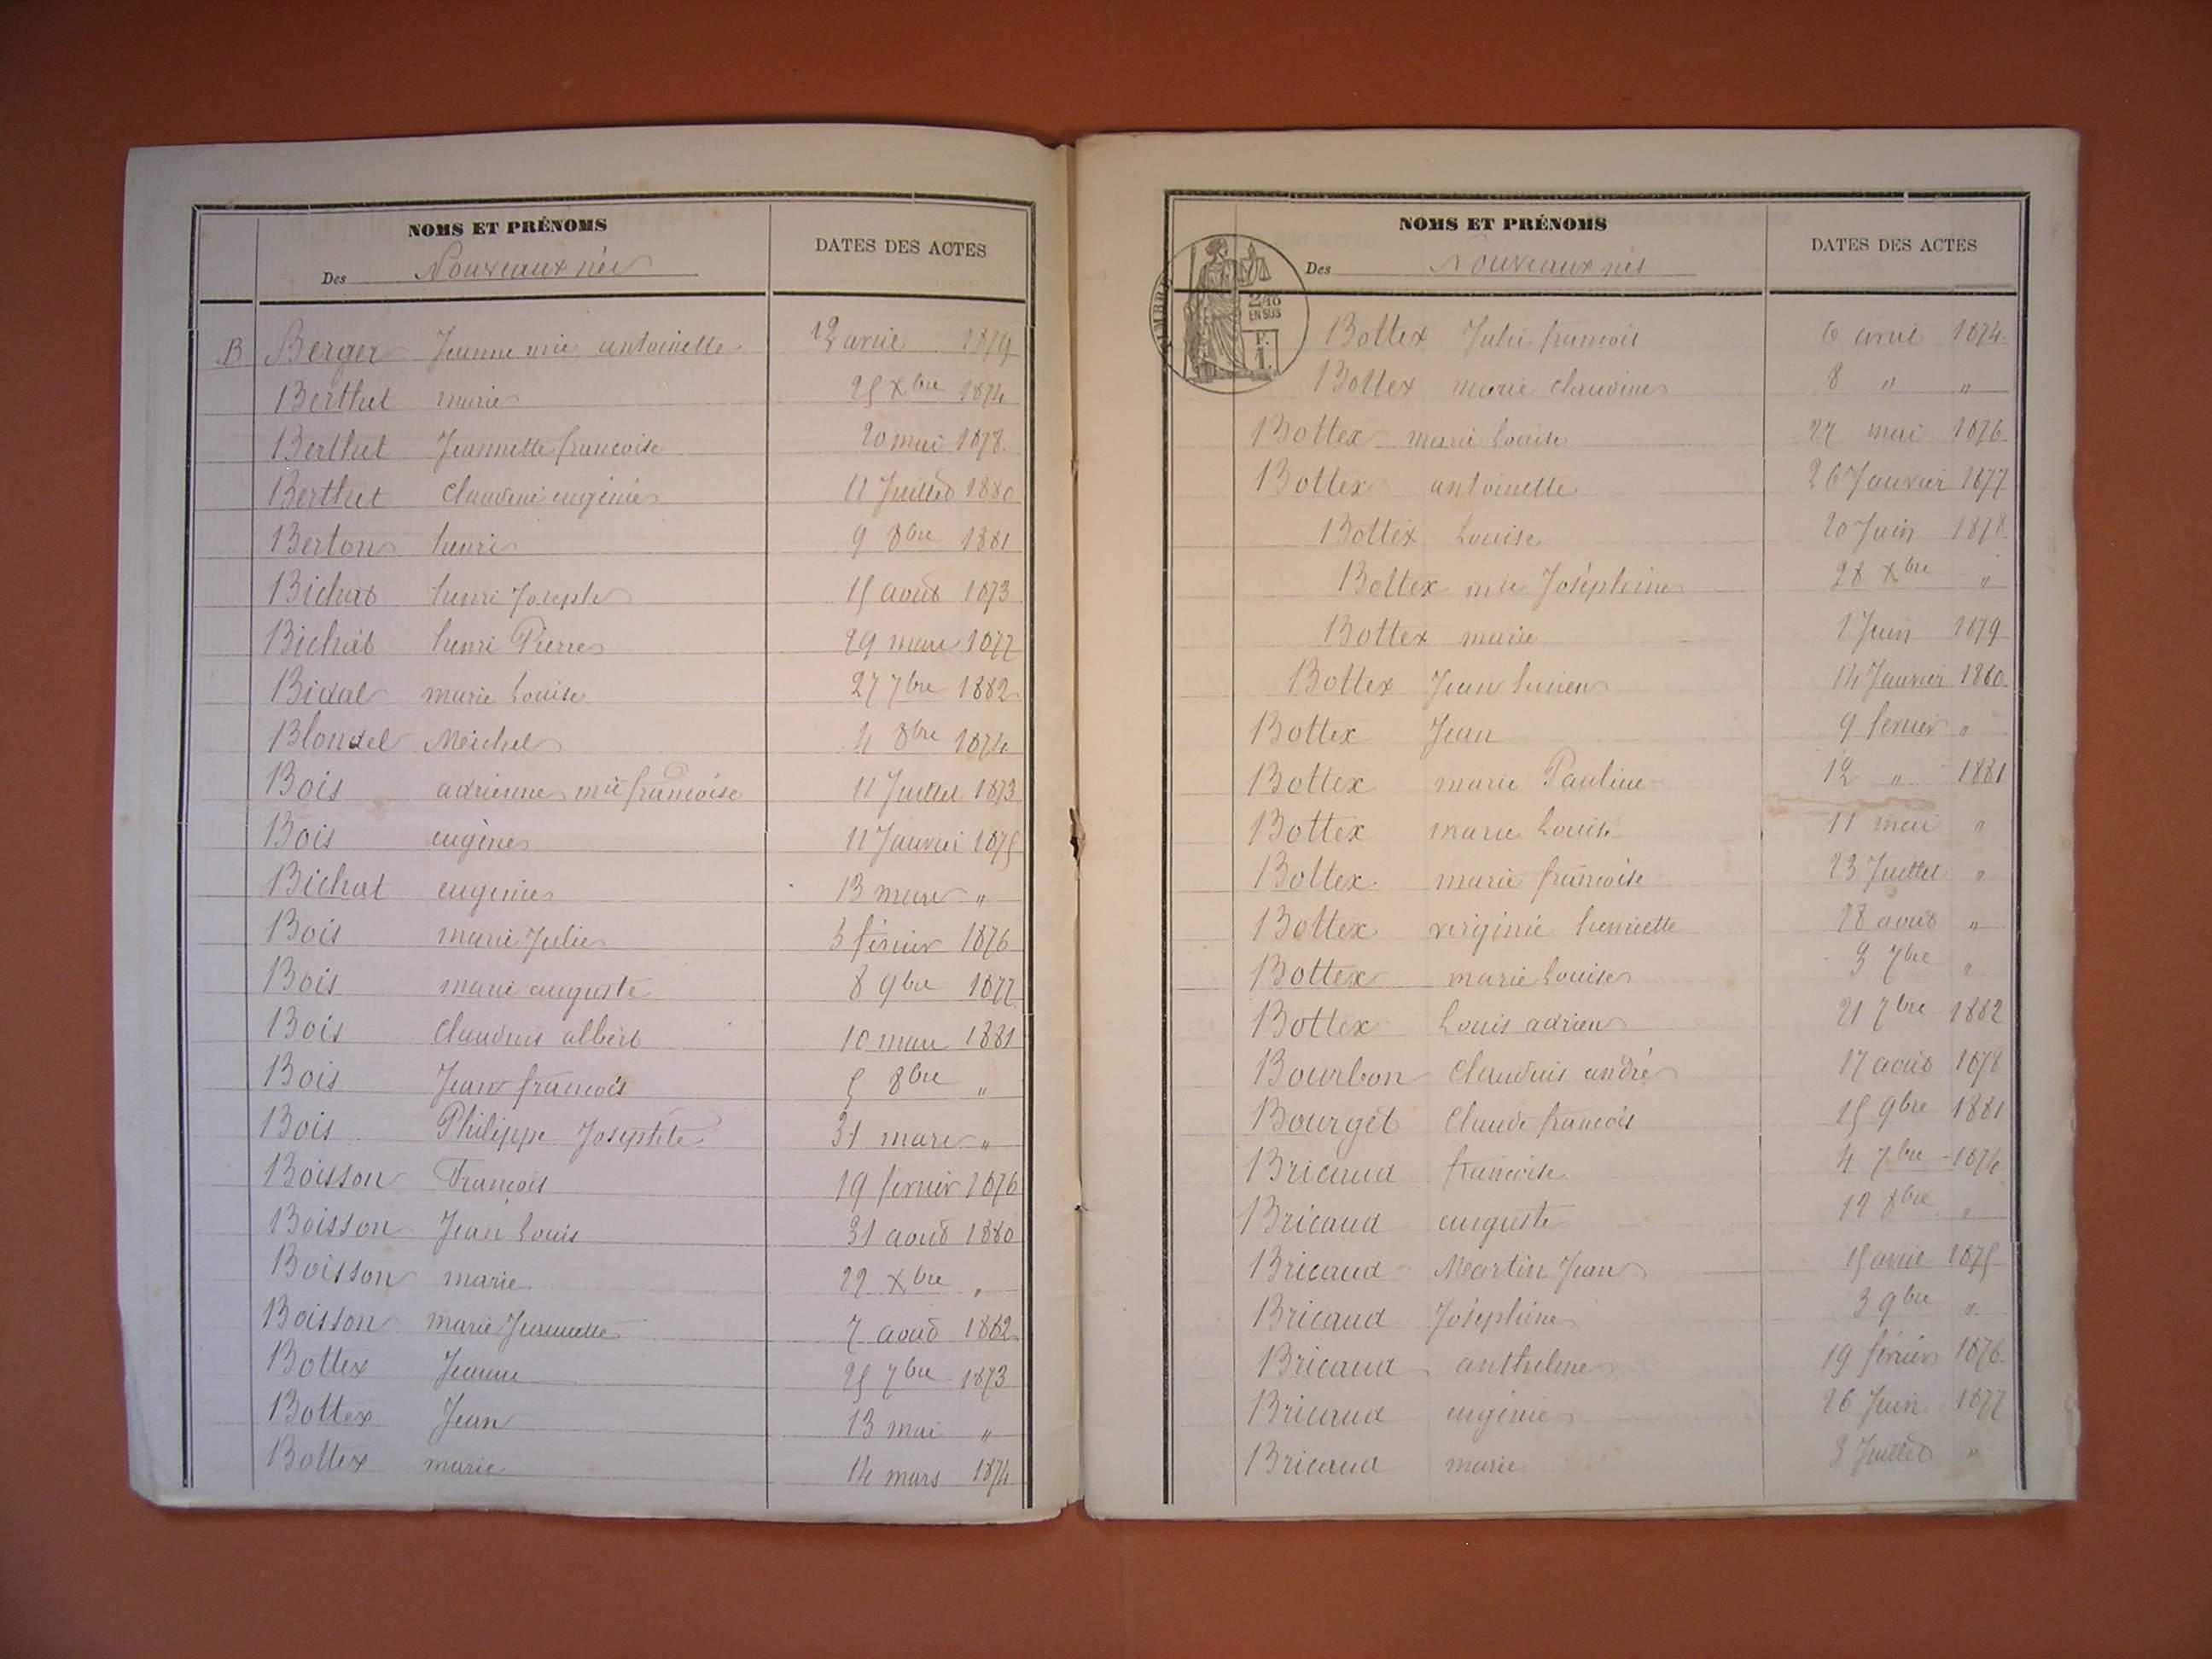 NOMS ET PRÉNOMS
DATES DES ACTES
Des Nouveaux nés
B Berger Jeanne mie antoinette 12 avril 1879
Berthet marie 25 Xbre 1874
Berthet Jeannette francoise 20 mai 1878
Berthet Claudine eugénie 11 Juillet 1880
Berton henri 9 8bre 1881
Bichat henri Joseph 15 aout 1873
Bichat henri Pierre 29 mars 1877
Bidal marie Louise 27 7bre 1882
Blondel Michel 4 8bre 1874
Bois adrienne mie francoise 11 Juillet 1873
Bois eugène 11 Janvier 1875
Bichat eugenie 13 mars "
Bois marie Julie 3 février 1876
Bois marie auguste 8 9bre 1877
Bois Claudius albert 10 mars 1881
Bois Jean francois 5 8bre "
Bois Philippe Joseph 31 mars "
Boisson Francois 19 fevrier 1876
Boisson Jean Louis 31 aout 1880
Boisson marie 22 Xbre "
Boisson marie Jeannette 7 aout 1882
Bottex Jeanne 25 7bre 1873
Bottex Jean 13 mai "
Bottex marie 14 mars 1874
NOMS ET PRÉNOMS
DATES DES ACTES
Des Nouveaux nés
TIMBRE
2/10
EN SUS
F.
1.
Bottex Julie francois 6 avril 1874
Bottex marie Claudine 8 " "
Bottex marie Louise 27 mai 1876
Bottex antoinette 26 Janvier 1877
Bottex Louise 20 Juin 1878
Bottex mie Joséphine 28 Xbre "
Bottex marie 1 Juin 1879
Bottex Jean lucien 14 Janvier 1880
Bottex Jean 9 fevrier "
Bottex marie Pauline 12 " 1881
Bottex marie Louise 11 mai "
Bottex marie francoise 23 Juillet "
Bottex virginie henriette 28 aout "
Bottex marie Louise 3 7bre "
Bottex Louis adrien 21 7bre 1882
Bourbon Claudius andré 17 aout 1878
Bourget Claude francois 15 9bre 1881
Bricaud francoise 4 7bre 1874
Bricaud auguste 12 8bre "
Bricaud Martin Jean 15 avril 1875
Bricaud Joséphine 3 9bre "
Bricaud anthelme 19 février 1876
Bricaud eugénie 26 Juin 1877
Bricaud marie 3 Juillet "